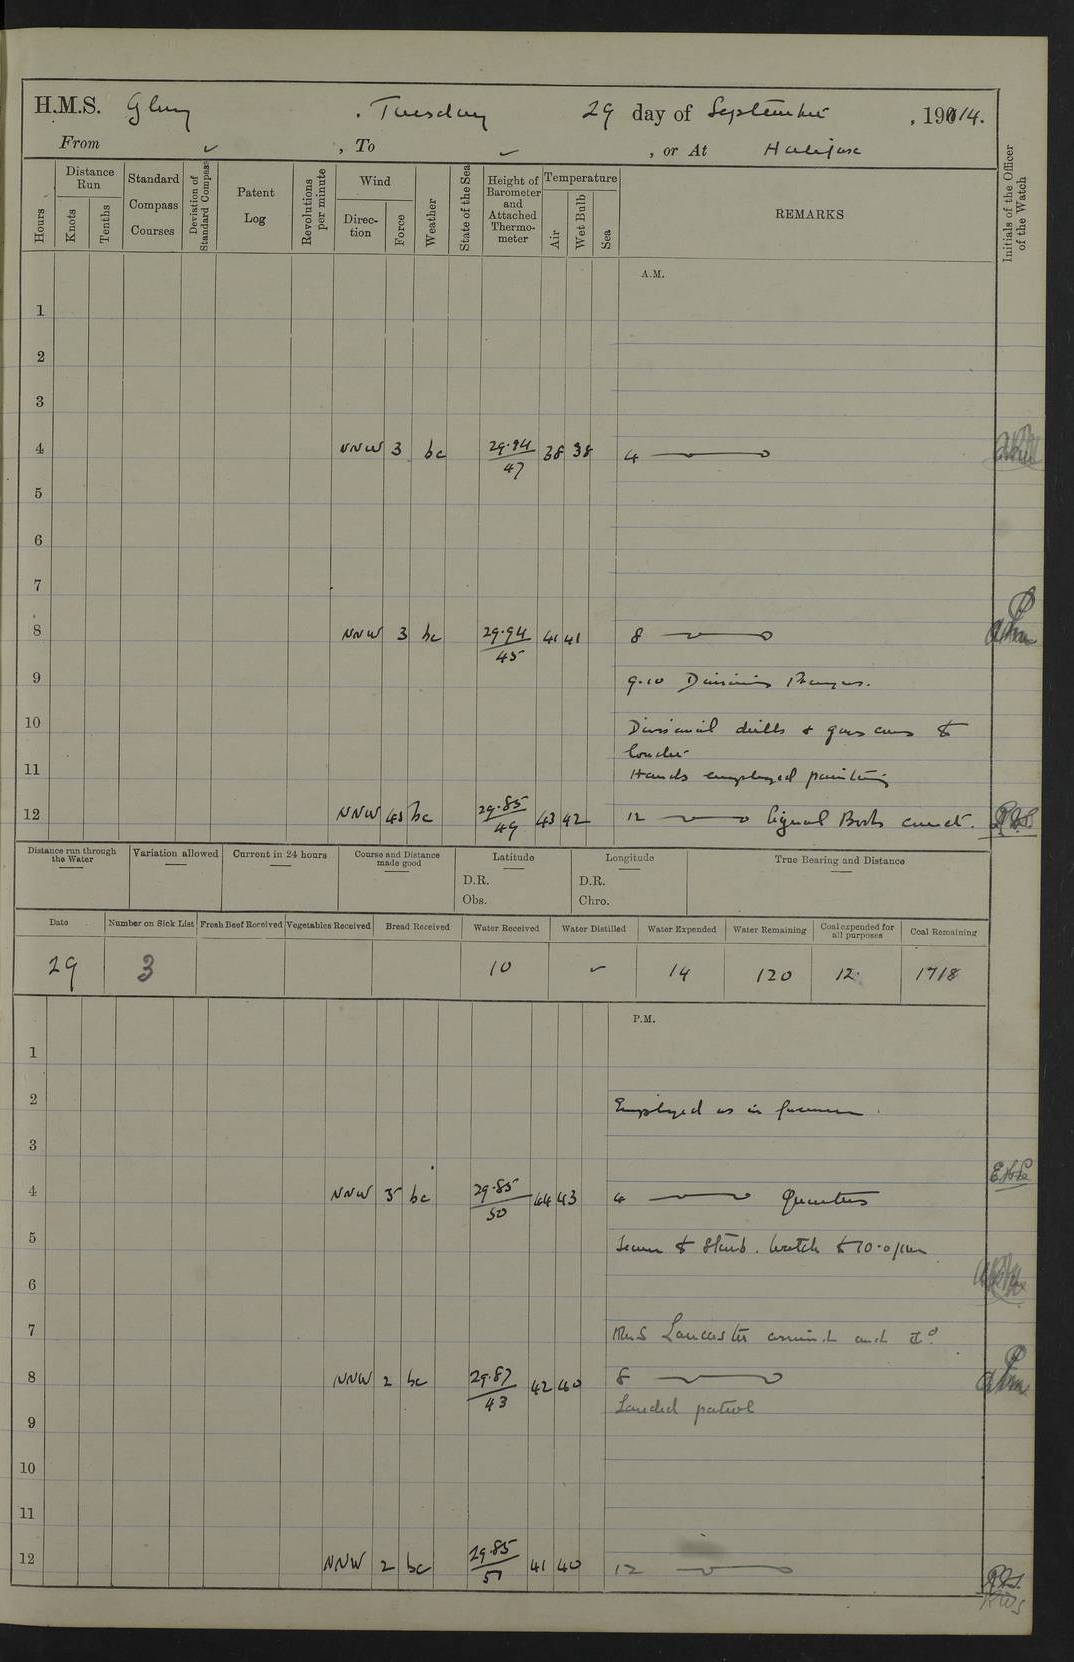 H.M.S. Glory , Tuesday 29 day of September , 1914.
From ✓ , To ✓ , or At Halifax
Hours
Distance Run
Knots
Tenths
Standard Compass Courses
Deviation of Standard Compass
Patent Log
Revolutions per minute
Wind
Direction
Force
Weather
State of the Sea
Height of Barometer and Attached Thermometer
Temperature
Air
Wet Bulb
Sea
REMARKS
Initials of the Officer of the Watch
A.M.
1
2
3
4 NNW 3 bc 29.94 47 38 38 4
5
6
7
8 NNW 3 bc 29.94 45 41 41 8
9 9.10 Divisions Prayers.
10 Divisional drills & guns crews to
loader
11 Hands employed painting
12 NNW 4.5 bc 29.85 49 43 42 12 Signal Books correct.
Distance run through the Water
Variation allowed
Current in 24 hours
Course and Distance made good
Latitude
D.R.
Obs.
Longitude
D.R.
Chro.
True Bearing and Distance
Date
Number on Sick List
Fresh Beef Received
Vegetables Received
Bread Received
Water Received
Water Distilled
Water Expended
Water Remaining
Coal expended for all purposes
Coal Remaining
29 3 10 ✓ 14 120 12 1718
P.M.
1
2 Employed as in forenoon
3
4 NNW 3 bc 29.85 50 44 43 4 Quarters
5 Leave to Starb. Watch to 10.0 pm
6
7 HMS Lancaster arrived and
8 NNW 2 bc 29.87 43 42 40 8
Landed patrol
9
10
11
12 NNW 2 bc 29.85 51 41 40 12